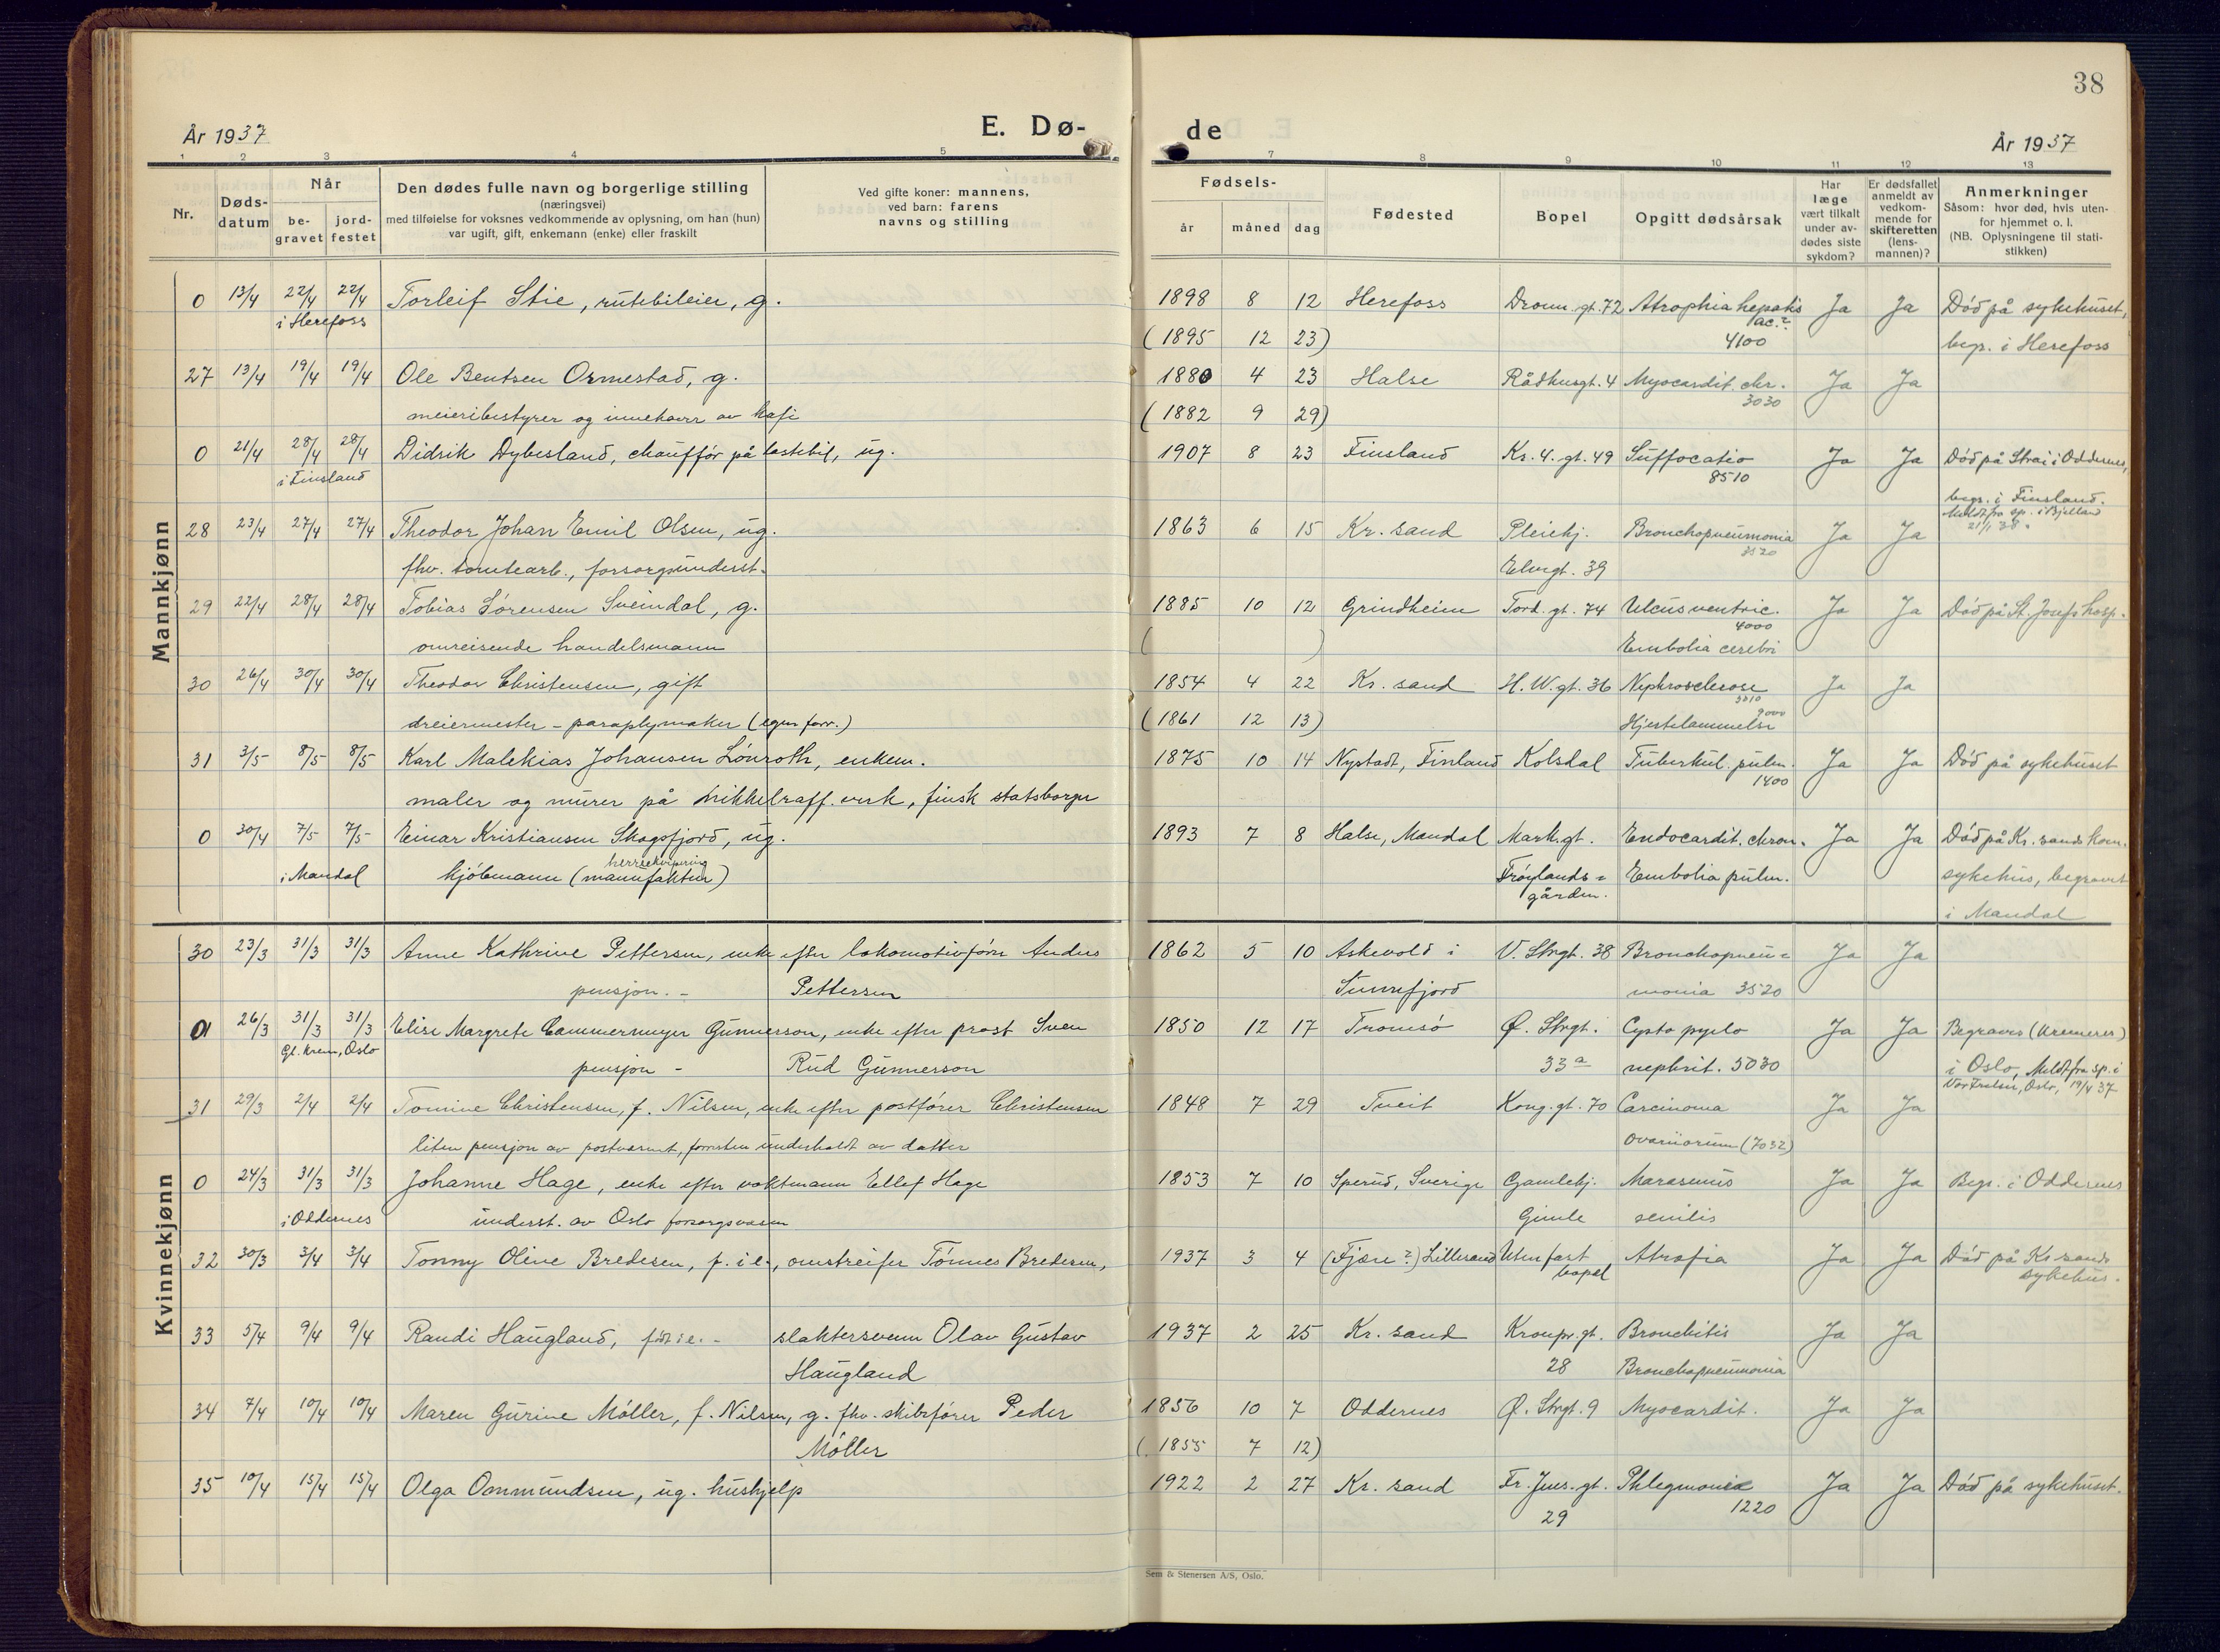 38
År 1937
E. Dø-
de
År 1937
1 2 3 4 5
7 8 9 10 11 12 13
Nr.
Døds-
datum
Når
be-
gravet
jord-
festet
Den dødes fulle navn og borgerlige stilling
(næringsvei)
med tilføielse for voksnes vedkommende av oplysning, om han (hun)
var ugift, gift, enkemann (enke) eller fraskilt
Ved gifte koner: mannens,
ved barn: farens
navns og stilling
Fødsels-
år måned dag
Fødested
Bopel
Opgitt dødsårsak
Har
læge
vært tilkalt
under av-
dødes siste
sykdom?
Er dødsfallet
anmeldt av
vedkom-
mende for
skifteretten
(lens-
mannen)?
Anmerkninger
Såsom: hvor død, hvis uten-
for hjemmet o. l.
(NB. Oplysningene til stati-
stikken)
Mannkjønn
0 13/4 22/4 22/4 Torleif Stie, rutebileier, g. 1898 8 12 Herefoss Dronn. gt. 72 Atrophia hepatis Ja Ja Død på sykehuset,
i Herefoss ac.?
(1895 12 23) 4100 begr. i Herefoss
27 13/4 19/4 19/4 Ole Bentsen Ormestad, g. 1880 4 23 Halse Rådhusgt. 4 Myocardit. chr. Ja Ja
3030
meieribestyrer og innehaver av kafé (1882 9 29)
0 21/4 28/4 28/4 Didrik Dybesland, chauffør på lastebil, ug. 1907 8 23 Finsland Kr. 4. gt. 49 Suffocatio Ja Ja Død på Strai i Oddernes,
i Finsland 8510
begr. i Finsland.
Meldt fra sp. i Bjelland
21/1 38.
28 23/4 27/4 27/4 Theodor Johan Emil Olsen, ug. 1863 6 15 Kr. sand Pleiehj. Bronchopneumonia Ja Ja
3520
fhv. tomtearb., forsorgsunderst. Elvegt. 39
29 22/4 28/4 28/4 Tobias Sørensen Sveindal, g. 1885 10 12 Grindheim Tord. gt. 74 Ulcus ventric. Ja Ja Død på St. Josefs hosp.
4000
omreisende handelsmann ( ) Embolia cerebri
30 26/4 30/4 30/4 Theodor Christensen, gift 1854 4 22 Kr. sand H. W. gt. 36 Nephrosclerose Ja Ja
dreiermester - paraplymaker (egen forr.) (1861 12 13) Hjertelammelse
9000
31 3/5 8/5 8/5 Karl Malekias Johansen Lönroth, enkem. 1875 10 14 Nystadt, Finland Kolsdal Tuberkul. pulm. Ja Ja Død på sykehuset
1400
maler og murer på nikkelraff. verk, finsk statsborger
0 30/4 7/5 7/5 Einar Kristiansen Skagsfjord, ug. 1893 7 8 Halse, Mandal Mark. gt. Endocardit. chron. Ja Ja Død på Kr. sands kom.
herreekvipering
i Mandal kjøbmann (manufaktur) Frøylands= Embolia pulm. sykehus, begravet
gården.
i Mandal
Kvinnekjønn
30 23/3 31/3 31/3 Anne Kathrine Pettersen, enke efter lokomotivfører Anders 1862 5 10 Askevold i V. Strgt. 38 Bronchopneu= Ja Ja
pensjon. - Pettersen Sunnfjord monia 3520
0 26/3 31/3 31/3 Elise Margrete Cammermeyer Gunnerson, enke efter prost Sven 1850 12 17 Tromsø Ø. Strgt. Cysto pyelo Ja Ja Begraves (kremeres)
Gl. krem, Oslo
pensjon - Rud Gunnerson 33a nephrit. 5030 i Oslo, Meldt fra sp. i
Vår Frelser, Oslo, 19/4 37
31 29/3 2/4 2/4 Tomine Christensen, f. Nilsen, enke efter postfører Christensen 1848 7 29 Tveit Kong. gt. 70 Carcinoma Ja Ja
liten pensjon av postvesenet, forresten underholdt av datter ovariorum (7032)
0 24/3 31/3 31/3 Johanne Hage, enke efter voktmann Ellef Hage 1853 7 10 Sperud, Sverige Gamlehj. Marasmus Ja Ja Begr. i Oddernes
i Oddernes underst. av Oslo forsorgsvesen Gimle senilis
32 30/3 3/4 3/4 Tonny Oline Bredesen, f. i e., omstreifer Tønnes Bredesen, 1937 3 4 (Fjære?) Lillesand Uten fast Atrofia Ja Ja Død på Kr sands
bopel sykehus.
33 5/4 9/4 9/4 Randi Haugland, født i e. - slaktersvenn Olav Gustav 1937 2 25 Kr. sand Kronpr. gt. Bronchitis Ja Ja
Haugland 28 Bronchopneumonia
34 7/4 10/4 10/4 Maren Gurine Møller, f. Nilsen, g. fhv. skibsfører Peder 1856 10 7 Oddernes Ø. Strgt. 9 Myocardit. Ja Ja
Møller (1855 7 12)
35 10/4 15/4 15/4 Olga Ommundsen, ug. hushjelp 1922 2 27 Kr. sand Fr. Jms. gt. Phlegmone Ja Ja Død på sykehuset.
29 1220
Sem & Stenersen A/S, Oslo.